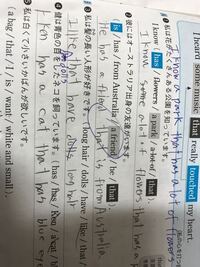 I hear some music that really touched my heart.
私は花がたくさんある公園を知っています。
know / has / flowers / a park / a lot of / that ).
I know a park that has a lot of flowers
彼にはオーストラリア出身の友達がいます。
is / has / from Australia / a friend / he / that
He has a friend that is from Australia
私は髪の長い人形が好きです。( long hair / dolls / have / like / that
I like dolls that have long hair
健は青色の目をしたネコを飼っています。( has / has / Ken / a cat / that
Ken has a cat that has blue eyes
私は白くて小さいかばんが欲しいです。
( a bag / that / I / is / want / white and small ).